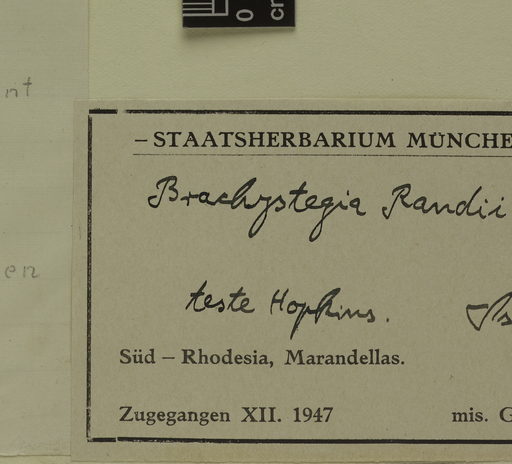 0
cm
nt
– STAATSHERBARIUM MÜNCHE
Brachystegia Randii
en
teste Hopkins.
Süd – Rhodesia, Marandellas.
Zugegangen XII. 1947 mis. G